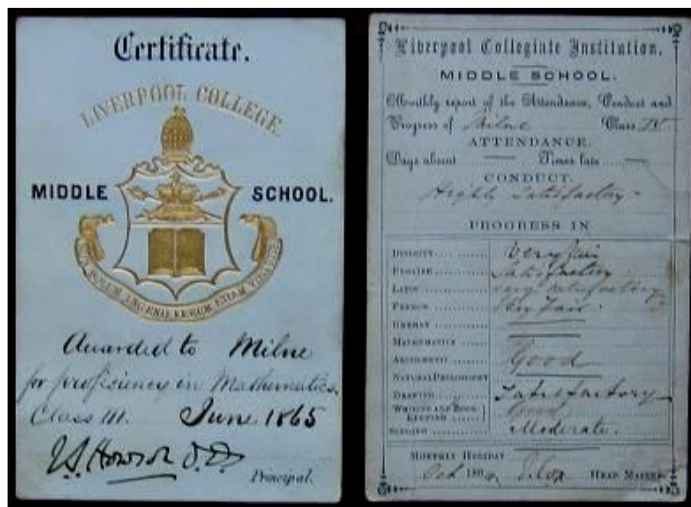 Certificate.
LIVERPOOL COLLEGE
MIDDLE SCHOOL.
NON SOLUM INGENII VERUM ETIAM VIRTUTIS
Awarded to Milne
for proficiency in Mathematics.
Class III. June 1865
Principal.
Liverpool Collegiate Institution.
MIDDLE SCHOOL.
Monthly report of the Attendance, Conduct and
Progress of Milne Class IV
ATTENDANCE.
Days absent — Times late —
CONDUCT.
Highly Satisfactory
PROGRESS IN
DIVINITY Very fair
ENGLISH Satisfactory
LATIN very satisfactory
FRENCH Very Fair
GERMAN
MATHEMATICS
ARITHMETIC Good
NATURAL PHILOSOPHY
DRAWING Satisfactory
WRITING AND BOOK- KEEPING Good
SINGING Moderate.
MONTHLY HOLIDAY
Oct 186 HEAD MASTER